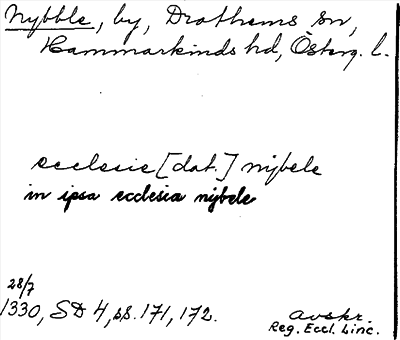 Nybble, by, Drothems sn,
Hammarkinds hd, Österg. l.
ecclesie [dat.] nijbele
in ipsa ecclesia nijbele
28/7
1330, SD 4, ss. 171, 172.
avskr.
Reg. Eccl. Linc.